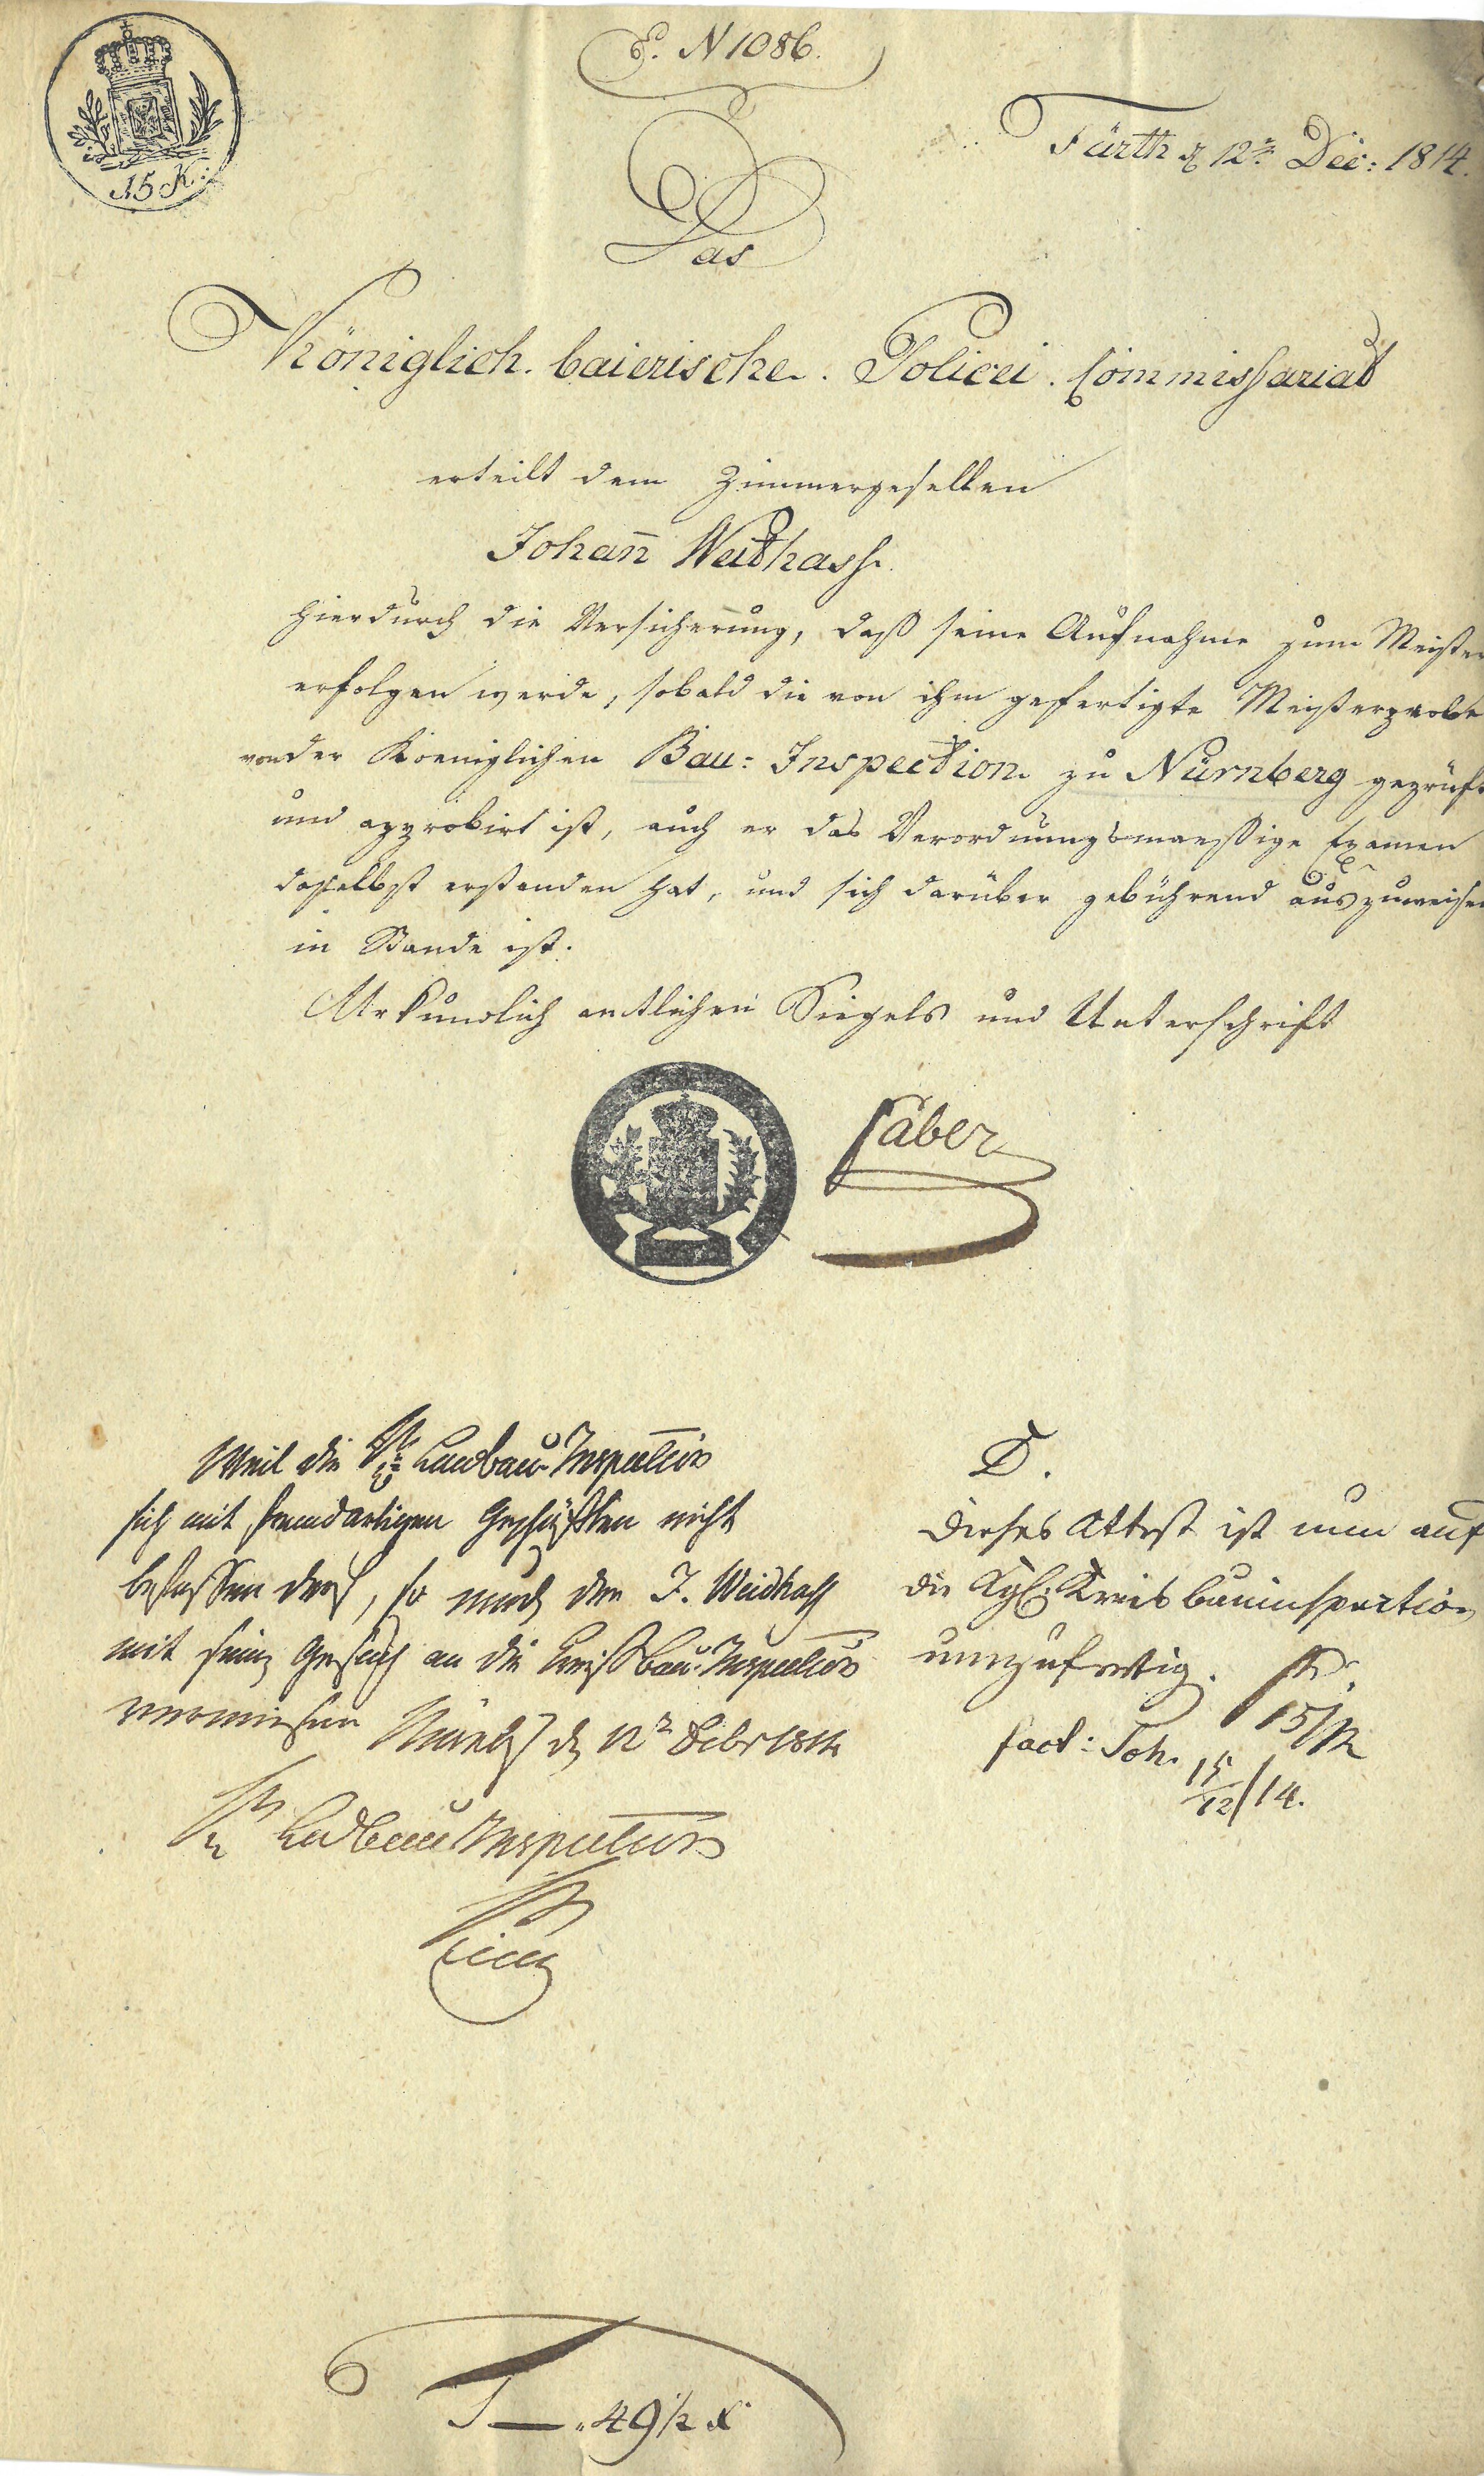 15 K:
E. N 1086.
Fürth d 12n Dec: 1814.
Das
Königlich baierische Policei Commissariat
erteilt dem Zimmergesellen
Johan̅ Weithass
hierdurch die Versicherung, daß seine Aufnahme zum Meister
erfolgen werde, sobald die von ihm gefertigte Meisterprobe
von der Koeniglichen Bau-Inspection zu Nürnberg geprüft
und approbirt ist, auch er das Verordnungsmaeßige Examen
daselbst erstanden hat, und sich darüber gebührend auszuweisen
in Stande ist.
Urkundlich amtlichen Siegels und Unterschrift
Faber
Weil die Landbau-Inspection
sich mit fremdartigen Geschäften nicht
befassen darf, so wird der J. Weidhass
mit seinem Gesuch an die Kreisbau-Inspection
verwiesen Nürnbg d 12 Debr 1814
Landbau Inspection
D.
Dieses Attest ist nun auf
die Kgl. Kreisbauinspection
umzufertig.
15/12
fact: 15/12/14.
T — " 49 1/2 x